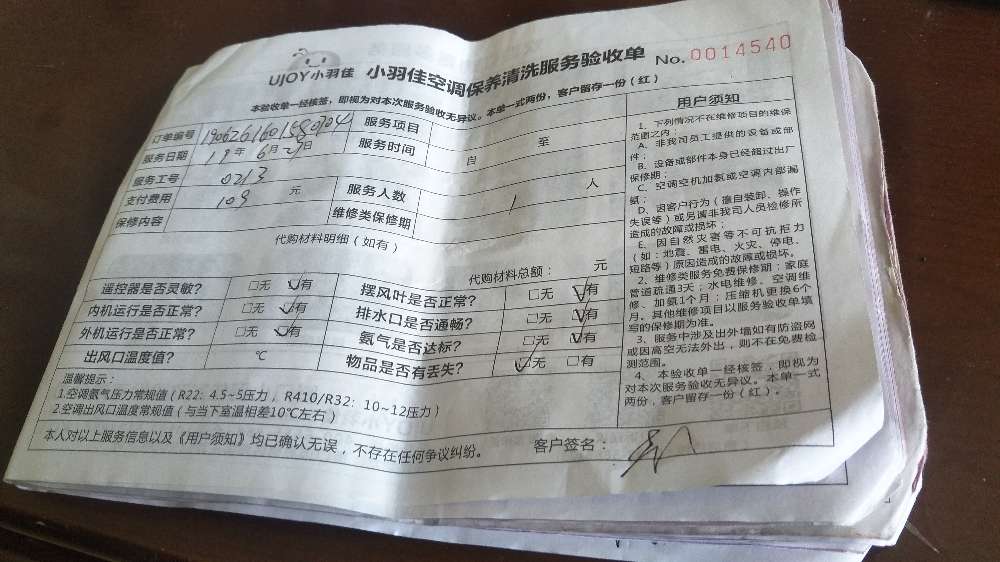 UJOY小羽佳 小羽佳空调保养清洗服务验收单 No. 0014540
本验收单一经核签，即视为对本次服务验收无异议。本单一式两份，客户留存一份（红）
订单编号 服务项目
服务日期 19年6月29日 服务时间 自 至
服务工号 0213
支付费用 109 元 服务人数 1 人
保修内容 维修类保修期
代购材料明细（如有）
代购材料总额： 元
遥控器是否灵敏？ □无 ☑有 摆风叶是否正常？ □无 ☑有
内机运行是否正常？ □无 ☑有 排水口是否通畅？ □无 ☑有
外机运行是否正常？ □无 ☑有 氨气是否达标？ □无 ☑有
出风口温度值？ ℃ 物品是否有丢失？ ☑无 □有
温馨提示：
1.空调氨气压力常规值（R22：4.5~5压力，R410/R32：10~12压力）
2.空调出风口温度常规值（与当下室温相差10℃左右）
本人对以上服务信息以及《用户须知》均已确认无误，不存在任何争议纠纷。
客户签名：
用户须知
1、下列情况不在维修项目的维保
范围之内：
A、非我司员工提供的设备或部
件；
B、设备或部件本身已经超过出厂
保修期；
C、空调空机加氨或空调内部漏
氨；
D、因客户行为（擅自装卸、操作
失误等）或另请非我司人员检修所
造成的故障或损坏；
E、因自然灾害等不可抗拒力
（如：地震、雷电、火灾、停电、
短路等）原因造成的故障或损坏。
2、维修类服务免费保修期：家庭
管道疏通3天；水电维修、空调维
修、加氨1个月；压缩机更换6个
月。其他维修项目以服务验收单填
写的保修期为准。
3、服务中涉及出外墙如有防盗网
或因高空无法外出，则不在免费检
测范围。
4、本验收单一经核签，即视为
对本次服务验收无异议。本单一式
两份，客户留存一份（红）。